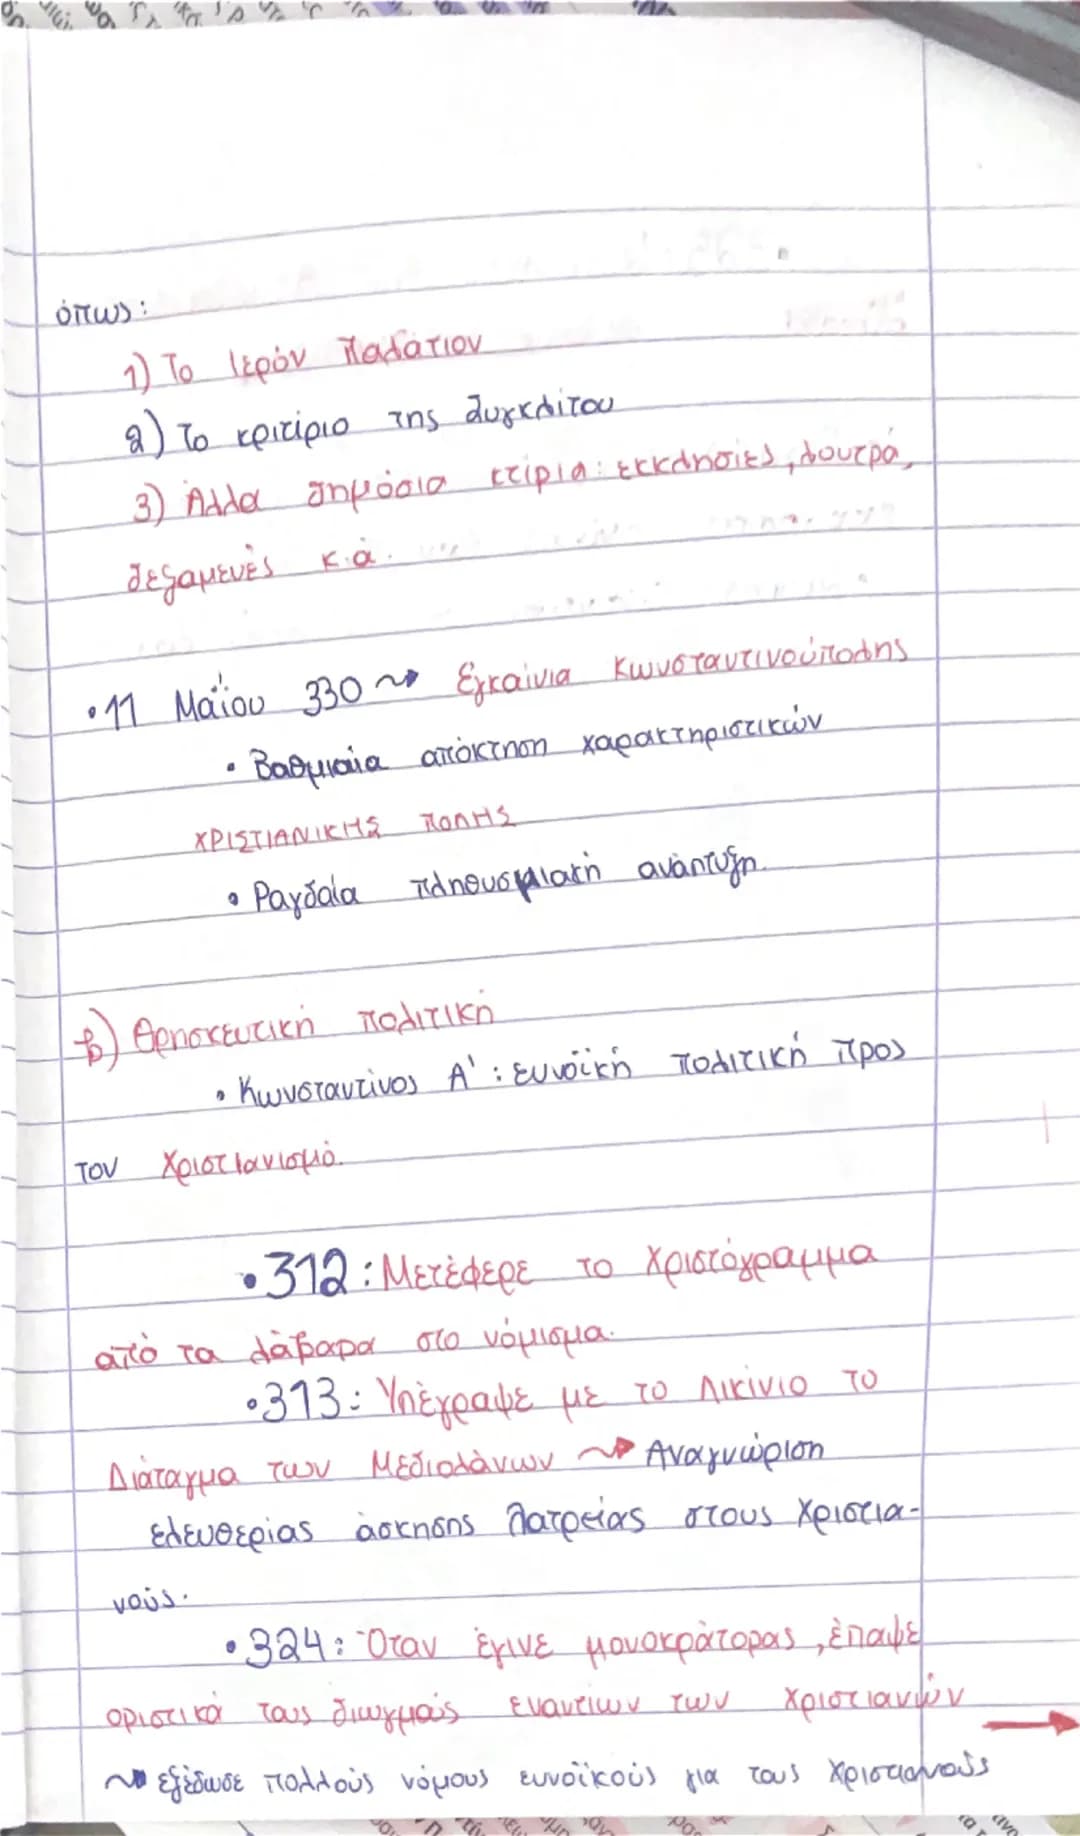 όπως:
1) Το Ιερόν Παλάτιον
2) Το κριτίριο της Συγκλίτου
3) Άλλα δημόσια κτίρια: εκκλησίες, λουτρά,
δεξαμενές κ.ά.
• 11 Μαΐου 330 → Εγκαίνια Κωνσταντινούπολης
• Βαθμιαία απόκτηση χαρακτηριστικών
ΧΡΙΣΤΙΑΝΙΚΗΣ ΠΟΛΗΣ
• Ραγδαία πληθυσμιακή ανάπτυξη.
β) Θρησκευτική πολιτική
• Κωνσταντίνος Α' : ευνοϊκή πολιτική προς
τον Χριστιανισμό.
• 312: Μετέφερε το Χριστόγραμμα
από τα λάβαρα στο νόμισμα.
• 313: Υπέγραψε με το Λικίνιο το
Διάταγμα των Μεδιολάνων → Αναγνώριση
ελευθερίας άσκησης λατρείας στους Χριστια-
νούς.
• 324: Όταν έγινε μονοκράτορας, έπαψε
οριστικά τους διωγμούς εναντίων των Χριστιανών →
→ εξέδωσε πολλούς νόμους ευνοϊκούς για τους Χριστιανούς